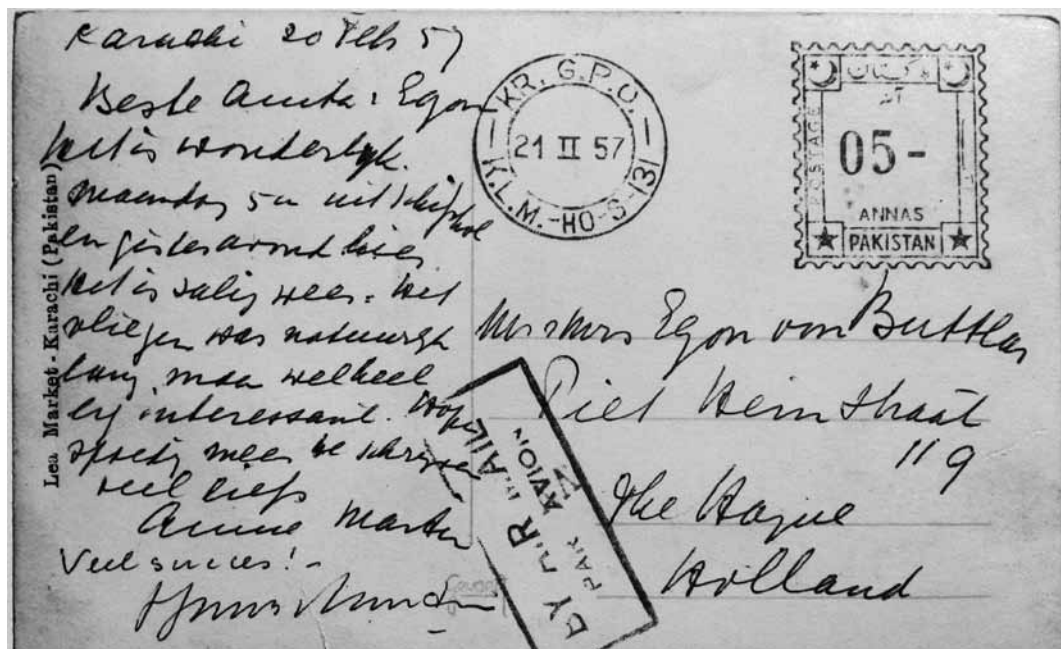 Karachi 20 Feb 57
Beste Anita & Egon
het is wonderlijk.
maandag 5 u uit Schiphol
en gisteravond hier
het is zalig weer. Het
vliegen was natuurlijk
lang, maar wel heel
erg interessant. Hope
spoedig meer te schrijven
veel liefs
Anne
Veel succes!-
Lea Market - Karachi (Pakistan)
KR. G.P.O.
21 II 57
K.L.M.-HO-S-131
پاکستان
POSTAGE
05-
ANNAS
PAKISTAN
Mr & Mrs Egon von Buttlar
Piet Hein Straat
119
The Hague
Holland
BY AIR MAIL
PAR AVION